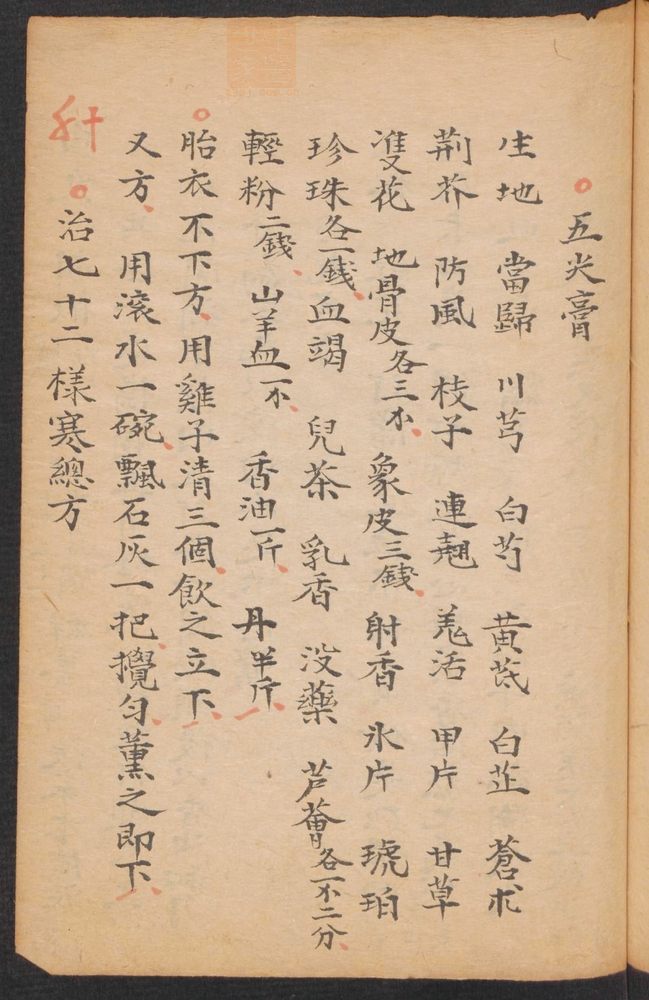 五炎膏
生地 當歸 川芎 白芍 黄芪 白芷 蒼朮
荆芥 防風 枝子 連翹 羗活 甲片 甘草
隻花 地骨皮各三不 象皮三錢 射香 氷片 琥珀
珍珠各一錢 血竭 兒茶 乳香 没藥 芦薈各一不二分
輕粉二錢 山羊血一不 香油一斤 丹半斤
胎衣不下方 用雞子清三個飲之立下
又方 用滚水一碗飄石灰一把攪匀薰之即下
治七十二樣寒總方